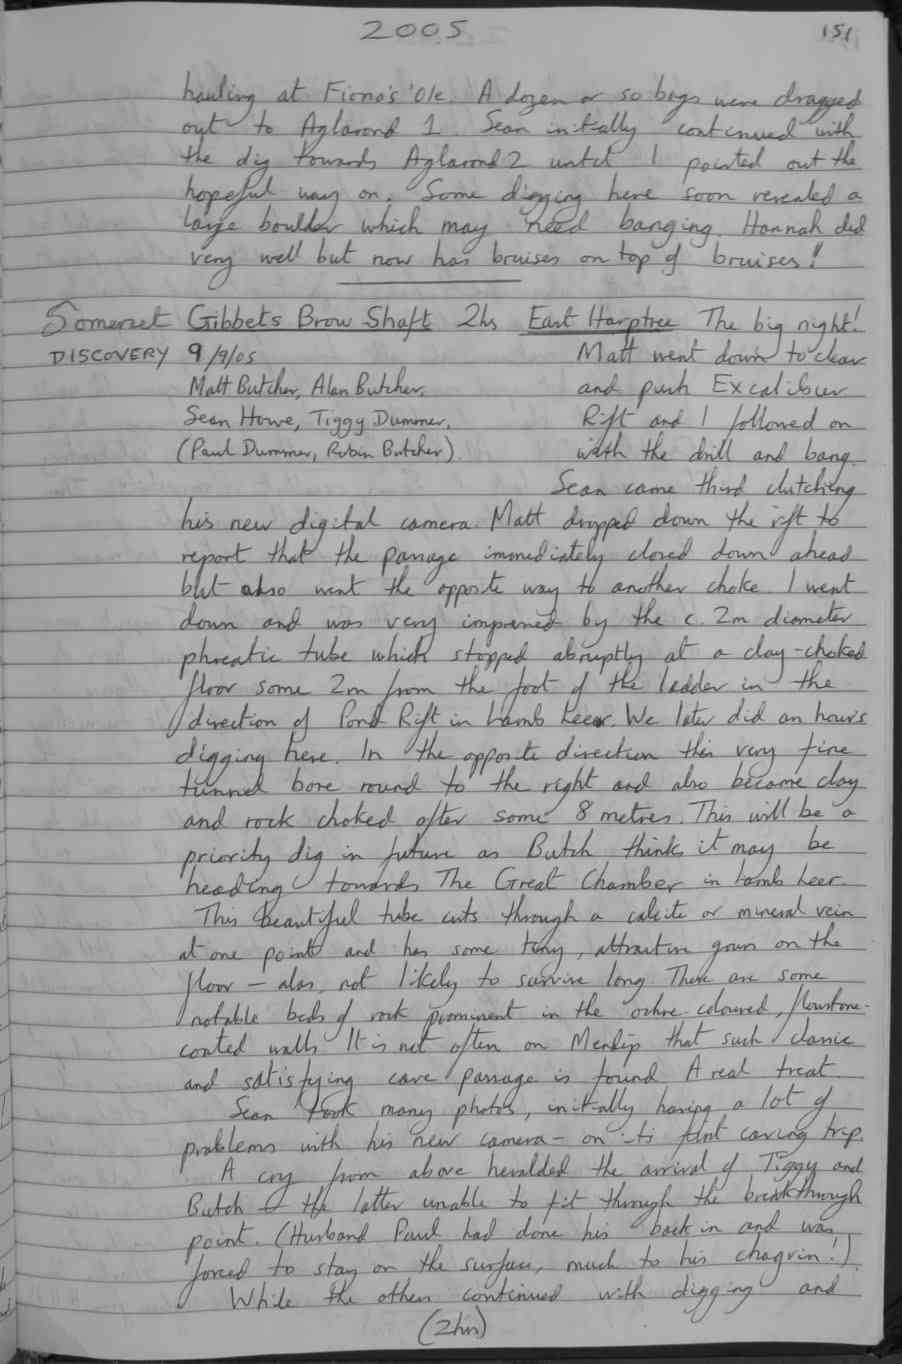 2005
151
hauling at Fiona's 'Ole. A dozen or so bags were dragged
out to Aglarond 1. Sean initially continued with
the dig towards Aglarond 2 until I pointed out the
hopeful way on. Some digging here soon revealed a
large boulder which may need banging. Hannah did
very well but now has bruises on top of bruises!
Somerset Gibbets Brow Shaft 2hs East Harptree The big night!
DISCOVERY 9/9/05 Matt went down to clear
Matt Butcher, Alan Butcher, and push Excalibur
Sean Howe, Tiggy Dummer, Rift and I followed on
(Paul Dummer, Robin Butcher). with the drill and bang.
Sean came third clutching
his new digital camera. Matt dropped down the rift to
report that the passage immediately closed down ahead
but also went the opposite way to another choke. I went
down and was very impressed by the c. 2m diameter
phreatic tube which stopped abruptly at a clay-choked
floor some 2m from the foot of the ladder in the
direction of Pond Rift in Lamb Leer. We later did an hour's
digging here. In the opposite direction this very fine
tunnel bore round to the right and also became clay
and rock choked after some 8 metres. This will be a
priority dig in future as Butch thinks it may be
heading towards The Great Chamber in Lamb Leer.
This beautiful tube cuts through a calcite or mineral vein
at one point and has some tiny, attractive gours on the
floor - alas, not likely to survive long. There are some
notable beds of rock prominent in the ochre-coloured, flowstone-
coated walls. It is not often on Mendip that such classic
and satisfying cave passage is found. A real treat.
Sean took many photos, initially having a lot of
problems with his new camera - on its first caving trip.
A cry from above heralded the arrival of Tiggy and
Butch - the latter unable to fit through the breakthrough
point. (Husband Paul had done his back in and was
forced to stay on the surface, much to his chagrin!).
While the others continued with digging and
(2hs)